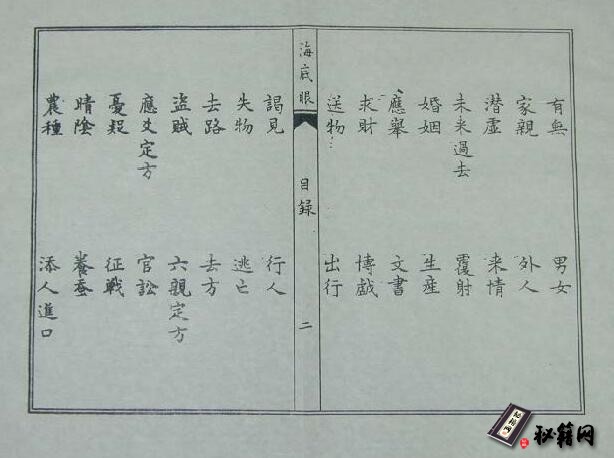 有無 男女
家親 外人
潛虛 来情
未来過去 覆射
婚姻 生産
應舉 文書
求財 博戯
送物 出行
海底眼 目錄 二
謁見 行人
失物 逃亡
去路 去方
盜賊 六親定方
應爻定方 官訟
憂疑 征戰
晴陰 養蚕
農種 添人進口
秘籍网
秘籍网